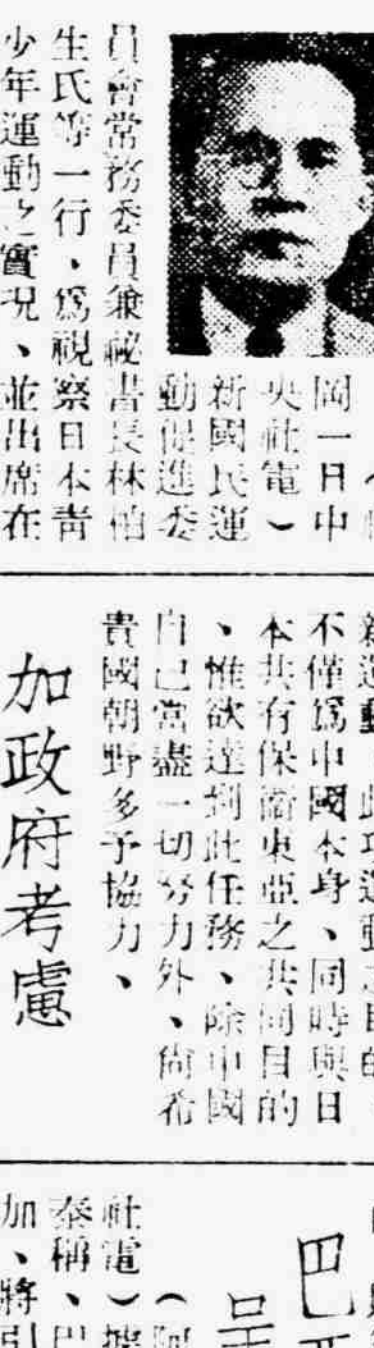 岡一日中
央社電）
新國民運
動促進委
員會常務委員兼祕書長林柏
生氏等一行、爲視察日本靑
少年運動之實況、並出席在
不僅爲中國本身、同時與日
本共有保衞東亞之共同目的
、惟欲達到此任務、除中國
自己當盡一切努力外、尙希
貴國朝野多予協力、
加政府考慮
巴
社電）據
泰稱、巴
加、將引